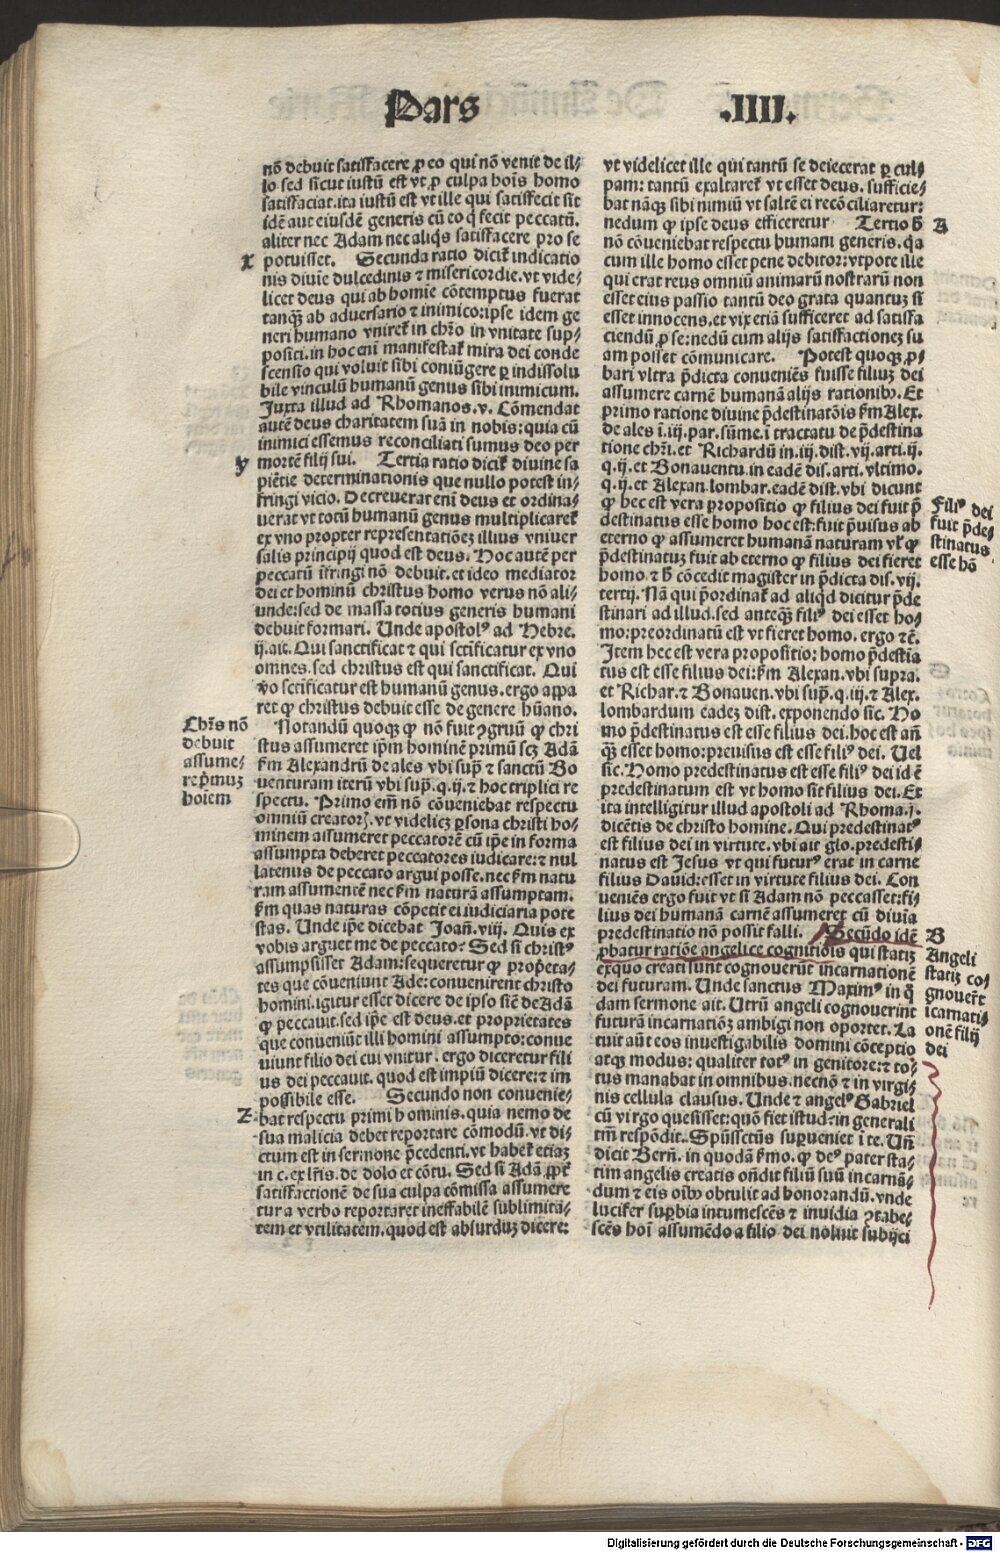 Pars .IIII.
nõ debuit satisfacere ꝓ eo qui nõ venit de il⸗
lo sed sicut iustũ est vt ꝓ culpa hoĩs homo
satisfaciat.ita iustũ est vt ille qui satisfecit sit
idẽ aut eiusdẽ generis cũ eo q̃ fecit peccatũ.
aliter nec Adam nec aliq̃s satisfacere pro se
x
potuisset. Secunda ratio dicit̃ indicatio
nis diuie dulcedinis ⁊ misericordie.vt vide⸗
licet deus qui ab homie cõtemptus fuerat
tanq̃ʒ ab aduersario ⁊ inimico:ipse idem ge
neri humano vniret̃ in chr̃o in vnitate sup⸗
positi.in hoc eni manifestat̃ mira dei conde
scensio qui voluit sibi coniũgere ꝑ indissolu
bile vinculũ humanũ genus sibi inimicum.
Juxta illud ad Rhomanos.v. Cõmendat
autẽ deus charitatem suã in nobis:quia cũ
inimici essemus reconciliati sumus deo per
y
mortẽ filij sui. Tertia ratio dicit̃ diuine sa
piẽtie determinationis que nullo potest in⸗
fringi vicio. Decreuerat eni deus et ordina⸗
uerat vt totũ humanũ genus multiplicaret̃
ex vno propter representationeʒ illius vniuer
salis principij quod est deus. Hoc autẽ per
peccatũ ĩfringi nõ debuit.et ideo mediator
dei et hominũ christus homo verus nõ ali⸗
unde:sed de massa totius generis humani
debuit formari. Unde apostolꝰ ad Hebre.
ij.ait. Qui sanctificat ⁊ qui sctificatur ex vno
omnes.sed christus est qui sanctificat. Qui
ṽo sctificatur est humanũ genus.ergo appa
ret ꝙ christus debuit esse de genere hũano.
Chr̃s nõ
debuit
assume⸗
re p̃muʒ
hoiem
Notandũ quoqʒ ꝙ nõ fuit ꝯgruũ ꝙ chri
stus assumeret ip̃m hominẽ primũ scʒ Adã
f̃m Alexandrũ de ales vbi sup̃ ⁊ sanctũ Bo
uenturam iterũ vbi sup̃.q.ij.⁊ hoc triplici re
spectu. Primo em̃ nõ cõueniebat respectu
omniũ creatorꝝ.vt videlicʒ ꝑsona christi ho⸗
minem assumeret peccatorẽ cũ ip̃e in forma
assumpta deberet peccatores iudicare:⁊ nul
latenus de peccato argui posse.nec f̃m natu
ram assumentẽ nec f̃m naturã assumptam.
f̃m quas naturas cõpetit ei iudiciaria pote
stas. Unde ip̃e dicebat Joañ.viij. Quis ex
vobis arguet me de peccato? Sed si christꝰ
assumpsisset Adam:sequeretur ꝙ prop̃eta⸗
tes que cõueniunt Ade:conuenirent christo
homini.igitur esset dicere de ipso siẽ de Adã
ꝙ peccauit.sed ip̃e est deus.et proprietates
que conueniũt illi homini assumpto:conue
niunt filio dei cui vnitur.ergo diceretur fili
us dei peccauit.quod est impiũ dicere:⁊ im
possibile esse. Secundo non conuenie⸗
z
bat respectu primi hominis.quia nemo de
sua malicia debet reportare cõmodũ.vt di⸗
ctum est in sermone p̃cedenti.vt habet̃ etiaʒ
in c.ex lr̃is.de dolo et cõtu. Sed si Adã ꝓpt̃
satisfactionẽ de sua culpa cõmissa assumere
tur a verbo reportaret ineffabilẽ sublimita⸗
tem et vtilitatem.quod est absurduʒ dicere:
vt videlicet ille qui tantũ se deiecerat ꝑ cul⸗
pam: tantũ exaltaret̃ vt esset deus. sufficie⸗
bat nãqʒ sibi nimiũ vt saltẽ ei recõciliaretur:
nedum ꝙ ipse deus efficeretur Tertio h̃
A
nõ cõueniebat respectu humani generis.q̃a
cum ille homo esset pene debitor:vtpote ille
qui erat reus omniũ animarũ nostrarũ non
esset eius passio tantũ deo grata quantuʒ si
esset innocens.et vix etiã sufficeret ad satisfa
ciendũ ꝓ se:nedũ cum alijs satisfactioneʒ su
am posset cõmunicare. Potest quoqʒ ꝓ⸗
bari vltra p̃dicta conueniẽs fuisse filiuʒ dei
assumere carnẽ humanã alijs rationibꝰ. Et
primo ratione diuine p̃destinatõis f̃m Alex.
de ales i.iij.par.sũme.ĩ tractatu de p̃destina
tione chr̃i.et Richardũ in.iij.dist.vij.arti.ij.
q.ij.et Bonauentu.in eadẽ dis.arti.vltimo.
q.ij.et Alexan.lombar.eadẽ dist.vbi dicunt
Filiꝰ dei
fuit p̃de⸗
stinatus
esse hõ
ꝙ hec est vera propositio ꝙ filius dei fuit p̃
destinatus esse homo hoc est:fuit p̃uisus ab
eterno ꝙ assumeret humanã naturam vl̃ ꝙ
p̃destinatuʒ fuit ab eterno ꝙ filius dei fieret
homo.⁊ h̃ cõcedit magister in p̃dicta dis.vij.
tertij. Nã qui p̃ordinat̃ ad aliq̃d dicitur p̃de
stinari ad illud.sed anteq̃ʒ filiꝰ dei esset ho⸗
mo:preordinatũ est vt fieret homo.ergo ⁊c̃.
Item hec est vera propositio: homo p̃destia
tus est esse filius dei:f̃m Alexan.vbi supra.
et Richar.⁊ Bonauen.vbi sup̃.q.iij.⁊ Alex.
lombardum eadeʒ dist.exponendo sic. Ho
mo p̃destinatus est esse filius dei.hoc est añ
q̃ʒ esset homo:preuisus est esse filiꝰ dei. Uel
sic. Homo predestinatus est esse filiꝰ dei id ẽ
predestinatum est vt homo sit filius dei. Et
ita intelligitur illud apostoli ad Rhoma.j.
dicẽtis de christo homine. Qui predestinatꝰ
est filius dei in virtute.vbi ait glo.predesti⸗
natus est Jesus vt qui futurꝰ erat in carne
filius Dauid:esset in virtute filius dei. Con
ueniẽs ergo fuit vt si Adam nõ peccasset:fi⸗
lius dei humanã carnẽ assumeret cũ diuia
predestinatio nõ possit falli. Secũdo idẽ
B
Angeli
statiʒ co⸗
gnouer̃t
icarnati⸗
onẽ filij
dei
ꝓbatur ratiõe angelice cognitiõis qui statiʒ
exquo creati sunt cognouerũt incarnationẽ
dei futuram. Unde sanctus Maximꝰ in q̃
dam sermone ait. Utrũ angeli cognouerint
futurã incarnatiõʒ ambigi non oportet. La
tuit aũt eos inuestigabilis domini cõceptio
atqʒ modus: qualiter totꝰ in genitore:⁊ to⸗
tus manabat in omnibus.necnõ ⁊ in virgi⸗
nis cellula clausus. Unde ⁊ angelꝰ Gabriel
cũ virgo quesisset:quõ fiet istud:in generali
tm̃ respõdit. Sp̃ussctũs supueniet ĩ te. Uñ
dicit Berñ. in quodã f̃mo.ꝙ deꝰ pater sta⸗
tim angelis creatis oñdit filiũ suũ incarnã⸗
dum ⁊ eis oĩbꝰ obtulit ad honorandũ.vnde
lucifer suꝑbia intumescẽs ⁊ inuidia ꝯtabe⸗
scẽs hoĩ assumẽdo a filio dei noluit subijci
Digitalisierung gefördert durch die Deutsche Forschungsgemeinschaft - DFG